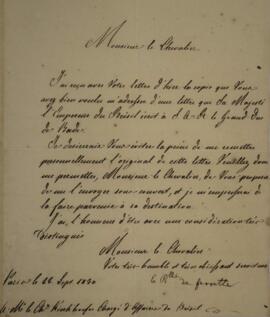 Monsieur le Chevalier
J'ai reçu avec Votre lettre d'hier la copie que Vous
avez bien voulu m'adresser d'une lettre que Sa Majesté
l'Empereur du Brésil écrit à S. A. R. le Grand Duc
de Bade.
Je désirerais Vous éviter la peine de me remettre
personnellement l'original de cette lettre. Veuillez donc
me permettre, Monsieur le Chevalier, de Vous proposer
de me l'envoyer sous couvert, et je m'empresserai de
la faire parvenir à sa destination.
J'ai l'honneur d'être avec une considération très
distinguée
Monsieur le Chevalier
Votre très humble et très obéissant serviteur
le
Paris le 22 Sept 1830
A Mr le Chev. Chargé d'Affaires du Brésil